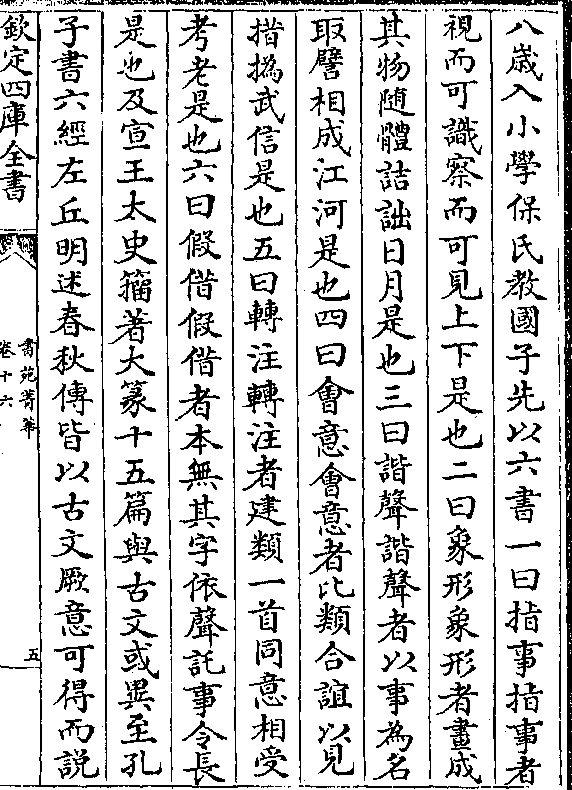 八歳入小學保氏教國子先以六書一曰指事指事者
視而可識察而可見上下是也二曰象形象形者畫成
其物随體詰詘日月是也三曰諧聲諧聲者以事為名
取譬相成江河是也四曰會意會意者比類合誼以見
指撝武信是也五曰轉注轉注者建類一首同意相受
考老是也六曰假借假借者本無其字依聲託事令長
是也及宣王太史籕著大篆十五篇與古文或異至孔
子書六經左丘明述春秋傳皆以古文厥意可得而説
欽定四庫全書
書苑菁華
卷十六
五